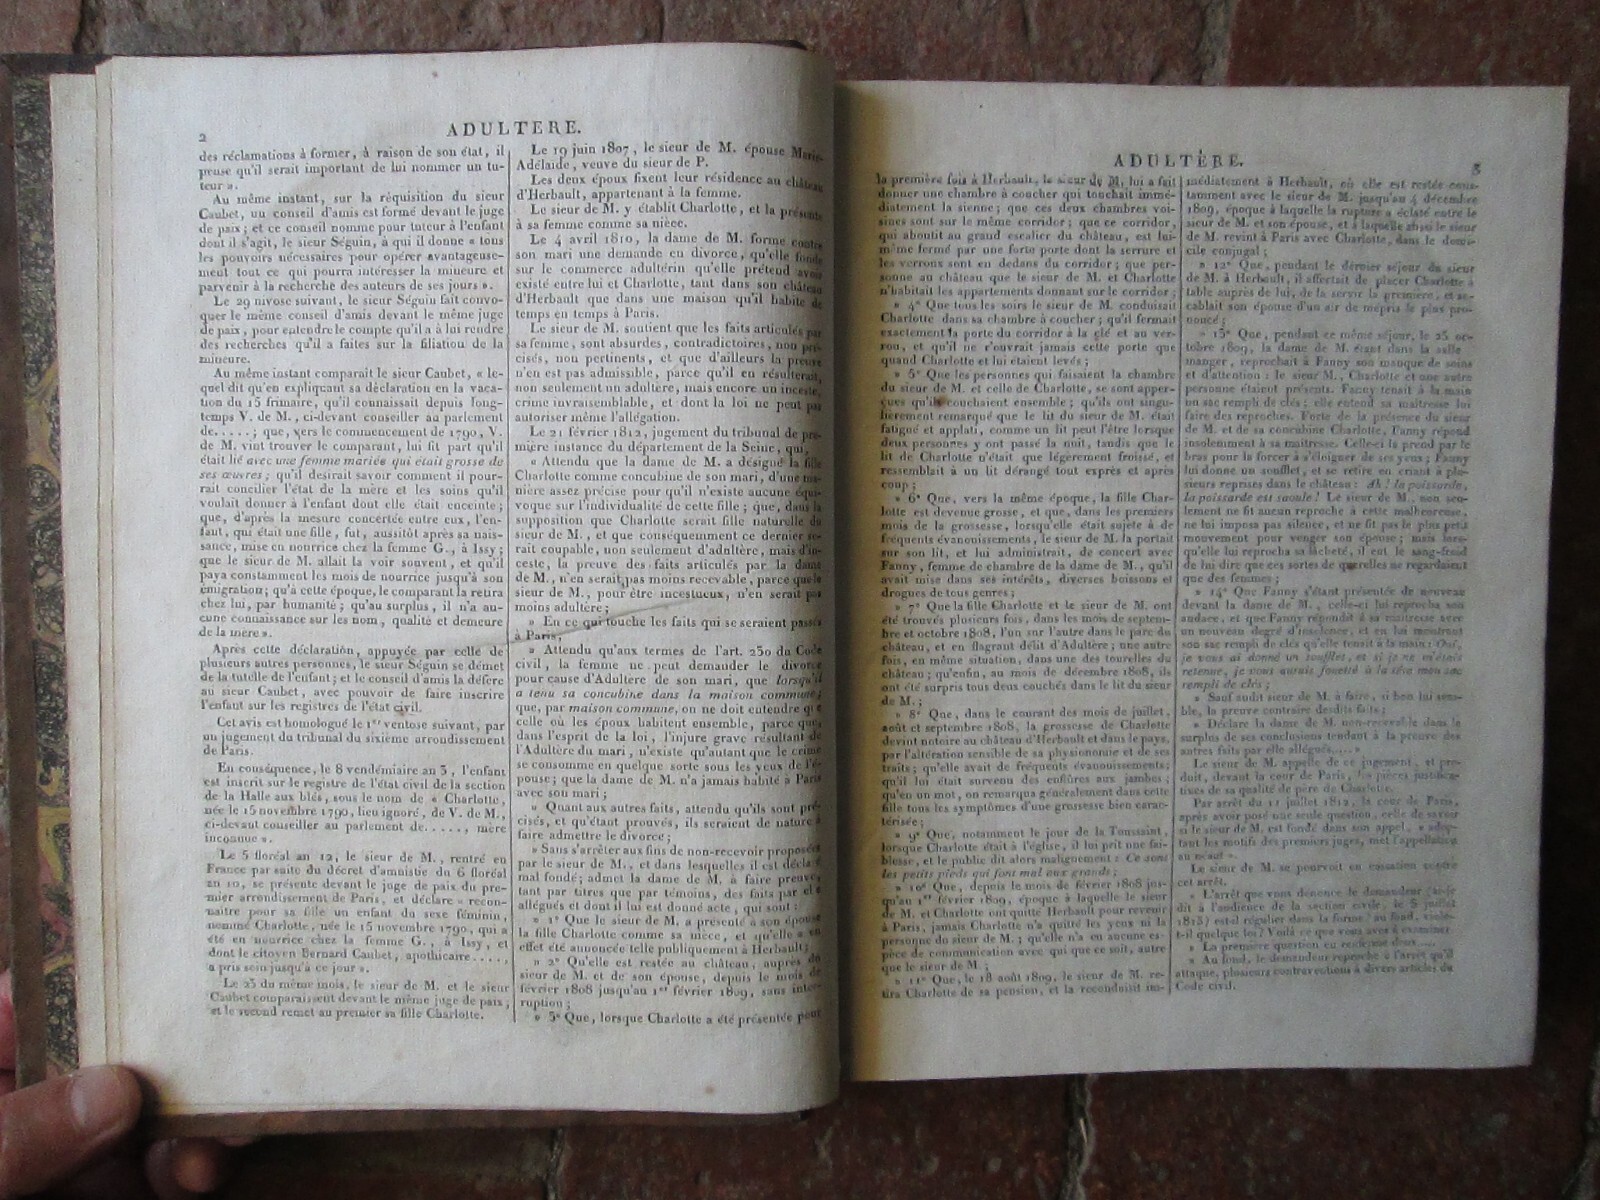 2
ADULTERE.
des réclamations à former, à raison de son état, il
pense qu'il serait important de lui nommer un tu-
teur ».
Au même instant, sur la réquisition du sieur
Caubet, un conseil d'amis est formé devant le juge
de paix; et ce conseil nomme pour tuteur à l'enfant
dont il s'agit, le sieur Séguin, à qui il donne « tous
les pouvoirs nécessaires pour opérer avantageuse-
ment tout ce qui pourra intéresser la mineure et
parvenir à la recherche des auteurs de ses jours ».
Le 29 nivose suivant, le sieur Séguin fait convo-
quer le même conseil d'amis devant le même juge
de paix, pour entendre le compte qu'il a à lui rendre
des recherches qu'il a faites sur la filiation de la
mineure.
Au même instant comparaît le sieur Caubet, « le-
quel dit qu'en expliquant sa déclaration en la vaca-
tion du 15 frimaire, qu'il connaissait depuis long-
temps V. de M., ci-devant conseiller au parlement
de.....; que, vers le commencement de 1790, V.
de M. vint trouver le comparant, lui fit part qu'il
était lié avec une femme mariée qui était grosse de
ses œuvres; qu'il desirait savoir comment il pour-
rait concilier l'état de la mère et les soins qu'il
voulait donner à l'enfant dont elle était enceinte;
que, d'après la mesure concertée entre eux, l'en-
fant, qui était une fille, fut, aussitôt après sa nais-
sance, mise en nourrice chez la femme G., à Issy;
que le sieur de M. allait la voir souvent, et qu'il
paya constamment les mois de nourrice jusqu'à son
émigration; qu'à cette époque, le comparant la retira
chez lui, par humanité; qu'au surplus, il n'a au-
cune connaissance sur les nom, qualité et demeure
de la mère ».
Après cette déclaration, appuyée par celle de
plusieurs autres personnes, le sieur Séguin se démet
de la tutelle de l'enfant; et le conseil d'amis la défère
au sieur Caubet, avec pouvoir de faire inscrire
l'enfant sur les registres de l'état civil.
Cet avis est homologué le 1er ventose suivant, par
un jugement du tribunal du sixième arrondissement
de Paris.
En conséquence, le 8 vendémiaire an 3, l'enfant
est inscrit sur le registre de l'état civil de la section
de la Halle aux blés, sous le nom de « Charlotte,
née le 15 novembre 1790, lieu ignoré, de V. de M.,
ci-devant conseiller au parlement de....., mère
inconnue ».
Le 5 floréal an 12, le sieur de M., rentré en
France par suite du décret d'amnistie du 6 floréal
an 10, se présente devant le juge de paix du pre-
mier arrondissement de Paris, et déclare « recon-
naître pour sa fille un enfant du sexe féminin,
nommé Charlotte, née le 15 novembre 1790, qui a
été en nourrice chez la femme G., à Issy, et
dont le citoyen Bernard Caubet, apothicaire.....,
a pris soin jusqu'à ce jour ».
Le 23 du même mois, le sieur de M. et le sieur
Caubet comparaissent devant le même juge de paix,
et le second remet au premier sa fille Charlotte.
Le 19 juin 1807, le sieur de M. épouse Marie-
Adélaide, veuve du sieur de P.
Les deux époux fixent leur résidence au château
d'Herbault, appartenant à la femme.
Le sieur de M. y établit Charlotte, et la présente
à sa femme comme sa nièce.
Le 4 avril 1810, la dame de M. forme contre
son mari une demande en divorce, qu'elle fonde
sur le commerce adultérin qu'elle prétend avoir
existé entre lui et Charlotte, tant dans son château
d'Herbault que dans une maison qu'il habite de
temps en temps à Paris.
Le sieur de M. soutient que les faits articulés par
sa femme, sont absurdes, contradictoires, non pré-
cisés, non pertinents, et que d'ailleurs la preuve
n'en est pas admissible, parce qu'il en résulterait,
non seulement un adultère, mais encore un inceste,
crime invraisemblable, et dont la loi ne peut pas
autoriser même l'allégation.
Le 21 février 1812, jugement du tribunal de pre-
mière instance du département de la Seine, qui,
« Attendu que la dame de M. a désigné la fille
Charlotte comme concubine de son mari, d'une ma-
nière assez précise pour qu'il n'existe aucune équi-
voque sur l'individualité de cette fille; que, dans la
supposition que Charlotte serait fille naturelle du
sieur de M., et que conséquemment ce dernier se-
rait coupable, non seulement d'adultère, mais d'in-
ceste, la preuve des faits articulés par la dame
de M., n'en serait pas moins recevable, parce que le
sieur de M., pour être incestueux, n'en serait pas
moins adultère;
» En ce qui touche les faits qui se seraient passés
à Paris;
» Attendu qu'aux termes de l'art. 230 du Code
civil, la femme ne peut demander le divorce
pour cause d'Adultère de son mari, que lorsqu'il
a tenu sa concubine dans la maison commune;
que, par maison commune, on ne doit entendre que
celle où les époux habitent ensemble, parce que,
dans l'esprit de la loi, l'injure grave résultant de
l'Adultère du mari, n'existe qu'autant que le crime
se consomme en quelque sorte sous les yeux de l'é-
pouse; que la dame de M. n'a jamais habité à Paris
avec son mari;
» Quant aux autres faits, attendu qu'ils sont pré-
cisés, et qu'étant prouvés, ils seraient de nature à
faire admettre le divorce;
» Sans s'arrêter aux fins de non-recevoir proposées
par le sieur de M., et dans lesquelles il est déclaré
mal fondé; admet la dame de M. à faire preuve,
tant par titres que par témoins, des faits par elle
allégués et dont il lui est donné acte, qui sont:
» 1° Que le sieur de M. a présenté à son épouse
la fille Charlotte comme sa nièce, et qu'elle a en
effet été annoncée telle publiquement à Herbault;
» 2° Qu'elle est restée au château, auprès du
sieur de M. et de son épouse, depuis le mois de
février 1808 jusqu'au 1er février 1809, sans inter-
ruption;
» 3° Que, lorsque Charlotte a été présentée pour
ADULTÈRE.
3
la première fois à Herbault, le sieur de M. lui a fait
donner une chambre à coucher qui touchait immé-
diatement la sienne; que ces deux chambres voi-
sines sont sur le même corridor; que ce corridor,
qui aboutit au grand escalier du château, est lui-
même fermé par une forte porte dont la serrure et
les verrous sont en dedans du corridor; que per-
sonne au château que le sieur de M. et Charlotte
n'habitait les appartements donnant sur le corridor;
» 4° Que tous les soirs le sieur de M. conduisait
Charlotte dans sa chambre à coucher; qu'il fermait
exactement la porte du corridor à la clé et au ver-
rou, et qu'il ne r'ouvrait jamais cette porte que
quand Charlotte et lui étaient levés;
» 5° Que les personnes qui faisaient la chambre
du sieur de M. et celle de Charlotte, se sont apper-
çues qu'ils couchaient ensemble; qu'ils ont singu-
lièrement remarqué que le lit du sieur de M. était
fatigué et applati, comme un lit peut l'être lorsque
deux personnes y ont passé la nuit, tandis que le
lit de Charlotte n'était que légèrement froissé, et
ressemblait à un lit dérangé tout exprès et après
coup;
» 6° Que, vers la même époque, la fille Char-
lotte est devenue grosse, et que, dans les premiers
mois de la grossesse, lorsqu'elle était sujete à de
fréquents évanouissements, le sieur de M. la portait
sur son lit, et lui administrait, de concert avec
Fanny, femme de chambre de la dame de M., qu'il
avait mise dans ses intérêts, diverses boissons et
drogues de tous genres;
» 7° Que la fille Charlotte et le sieur de M. ont
été trouvés plusieurs fois, dans les mois de septem-
bre et octobre 1808, l'un sur l'autre dans le parc du
château, et en flagrant délit d'Adultère; une autre
fois, en même situation, dans une des tourelles du
château; qu'enfin, au mois de décembre 1808, ils
ont été surpris tous deux couchés dans le lit du sieur
de M.;
» 8° Que, dans le courant des mois de juillet,
août et septembre 1808, la grossesse de Charlotte
devint notoire au château d'Herbault et dans le pays,
par l'altération sensible de sa physionomie et de ses
traits; qu'elle avait de fréquents évanouissements;
qu'il lui était survenu des enflûres aux jambes;
qu'en un mot, on remarqua généralement dans cette
fille tous les symptômes d'une grossesse bien carac-
térisée;
» 9° Que, notamment le jour de la Toussaint,
lorsque Charlotte était à l'église, il lui prit une fai-
blesse, et le public dit alors malignement: Ce sont
les petits pieds qui font mal aux grands;
» 10° Que, depuis le mois de février 1808 jus-
qu'au 1er février 1809, époque à laquelle le sieur
de M. et Charlotte ont quitté Herbault pour revenir
à Paris, jamais Charlotte n'a quitté les yeux ni la
personne du sieur de M.; qu'elle n'a eu aucune es-
pèce de communication avec qui que ce soit, autre
que le sieur de M.;
» 11° Que, le 18 août 1809, le sieur de M. re-
tira Charlotte de sa pension, et la reconduisit im-
médiatement à Herbault, où elle est restée cons-
tamment avec le sieur de M. jusqu'au 4 décembre
1809, époque à laquelle la rupture a éclaté entre le
sieur de M. et son épouse, et à laquelle aussi le sieur
de M. revint à Paris avec Charlotte, dans le domi-
cile conjugal;
» 12° Que, pendant le dernier séjour du sieur
de M. à Herbault, il affectait de placer Charlotte à
table auprès de lui, de la servir la première, et ac-
cablait son épouse d'un air de mépris le plus pro-
noncé;
» 13° Que, pendant ce même séjour, le 23 oc-
tobre 1809, la dame de M. étant dans la salle à
manger, reprochait à Fanny son manque de soins
et d'attention: le sieur M., Charlotte et une autre
personne étaient présents. Fanny tenait à la main
un sac rempli de clés; elle entend sa maîtresse lui
faire des reproches. Forte de la présence du sieur
de M. et de sa concubine Charlotte, Fanny répond
insolemment à sa maîtresse. Celle-ci la prend par le
bras pour la forcer à s'éloigner de ses yeux; Fanny
lui donne un soufflet, et se retire en criant à plu-
sieurs reprises dans le château: Ah! la poissarde,
la poissarde est saoule! Le sieur de M., non seu-
lement ne fit aucun reproche à cette malheureuse,
ne lui imposa pas silence, et ne fit pas le plus petit
mouvement pour venger son épouse; mais lors-
qu'elle lui reprocha sa lâcheté, il eut le sang-froid
de lui dire que ces sortes de querelles ne regardaient
que des femmes;
» 14° Que Fanny s'étant présentée de nouveau
devant la dame de M., celle-ci lui reprocha son
audace, et que Fanny répondit à sa maîtresse avec
un nouveau degré d'insolence, et en lui montrant
son sac rempli de clés qu'elle tenait à la main: Oui,
je vous ai donné un soufflet, et si je ne m'étais
retenue, je vous aurais foueté à la tête mon sac
rempli de clés;
» Sauf audit sieur de M. à faire, si bon lui sem-
ble, la preuve contraire desdits faits;
» Déclare la dame de M. non-recevable dans le
surplus de ses conclusions tendant à la preuve des
autres faits par elle allégués..... »
Le sieur de M. appelle de ce jugement, et pro-
duit, devant la cour de Paris, les pièces justifica-
tives de sa qualité de père de Charlotte.
Par arrêt du 11 juillet 1812, la cour de Paris,
après avoir posé une seule question, celle de savoir
si le sieur de M. est fondé dans son appel, « adop-
tant les motifs des premiers juges, met l'appellation
au néant ».
Le sieur de M. se pourvoit en cassation contre
cet arrêt.
« L'arrêt que vous dénonce le demandeur (ai-je
dit à l'audience de la section civile, le 5 juillet
1813) est-il régulier dans la forme? au fond, viole-
t-il quelque loi? Voilà ce que vous avez à examiner.
» La première question en renferme deux.....
» Au fond, le demandeur reproche à l'arrêt qu'il
attaque, plusieurs contraventions à divers articles du
Code civil.